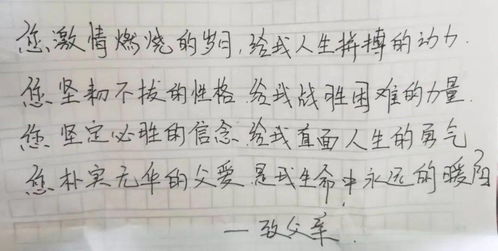 您激情燃烧的岁月,给我人生拼搏的动力.
您坚韧不拔的性格 给我战胜困难的力量.
您坚定必胜的信念 给我直面人生的勇气
您朴实无华的父爱 是我生命中永远的暖阳
—致父亲.